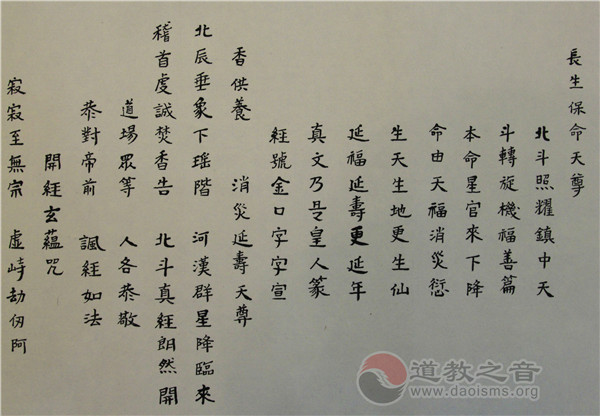 長生保命天尊
北斗照耀鎮中天
斗轉旋機福善篇
本命星官來下降
命由天福消災愆
生天生地更生仙
延福延壽更延年
真文乃是皇人篆
經號金口字字宣
香供養 消災延壽天尊
北辰垂象下瑶階 河漢群星降臨來
稽首虔誠焚香告 北斗真經朗然開
道場眾等 人各恭敬
恭對帝前 諷經如法
開經玄蘊咒
寂寂至無宗 虛峙劫仞阿
道教之音
www.daoisms.org